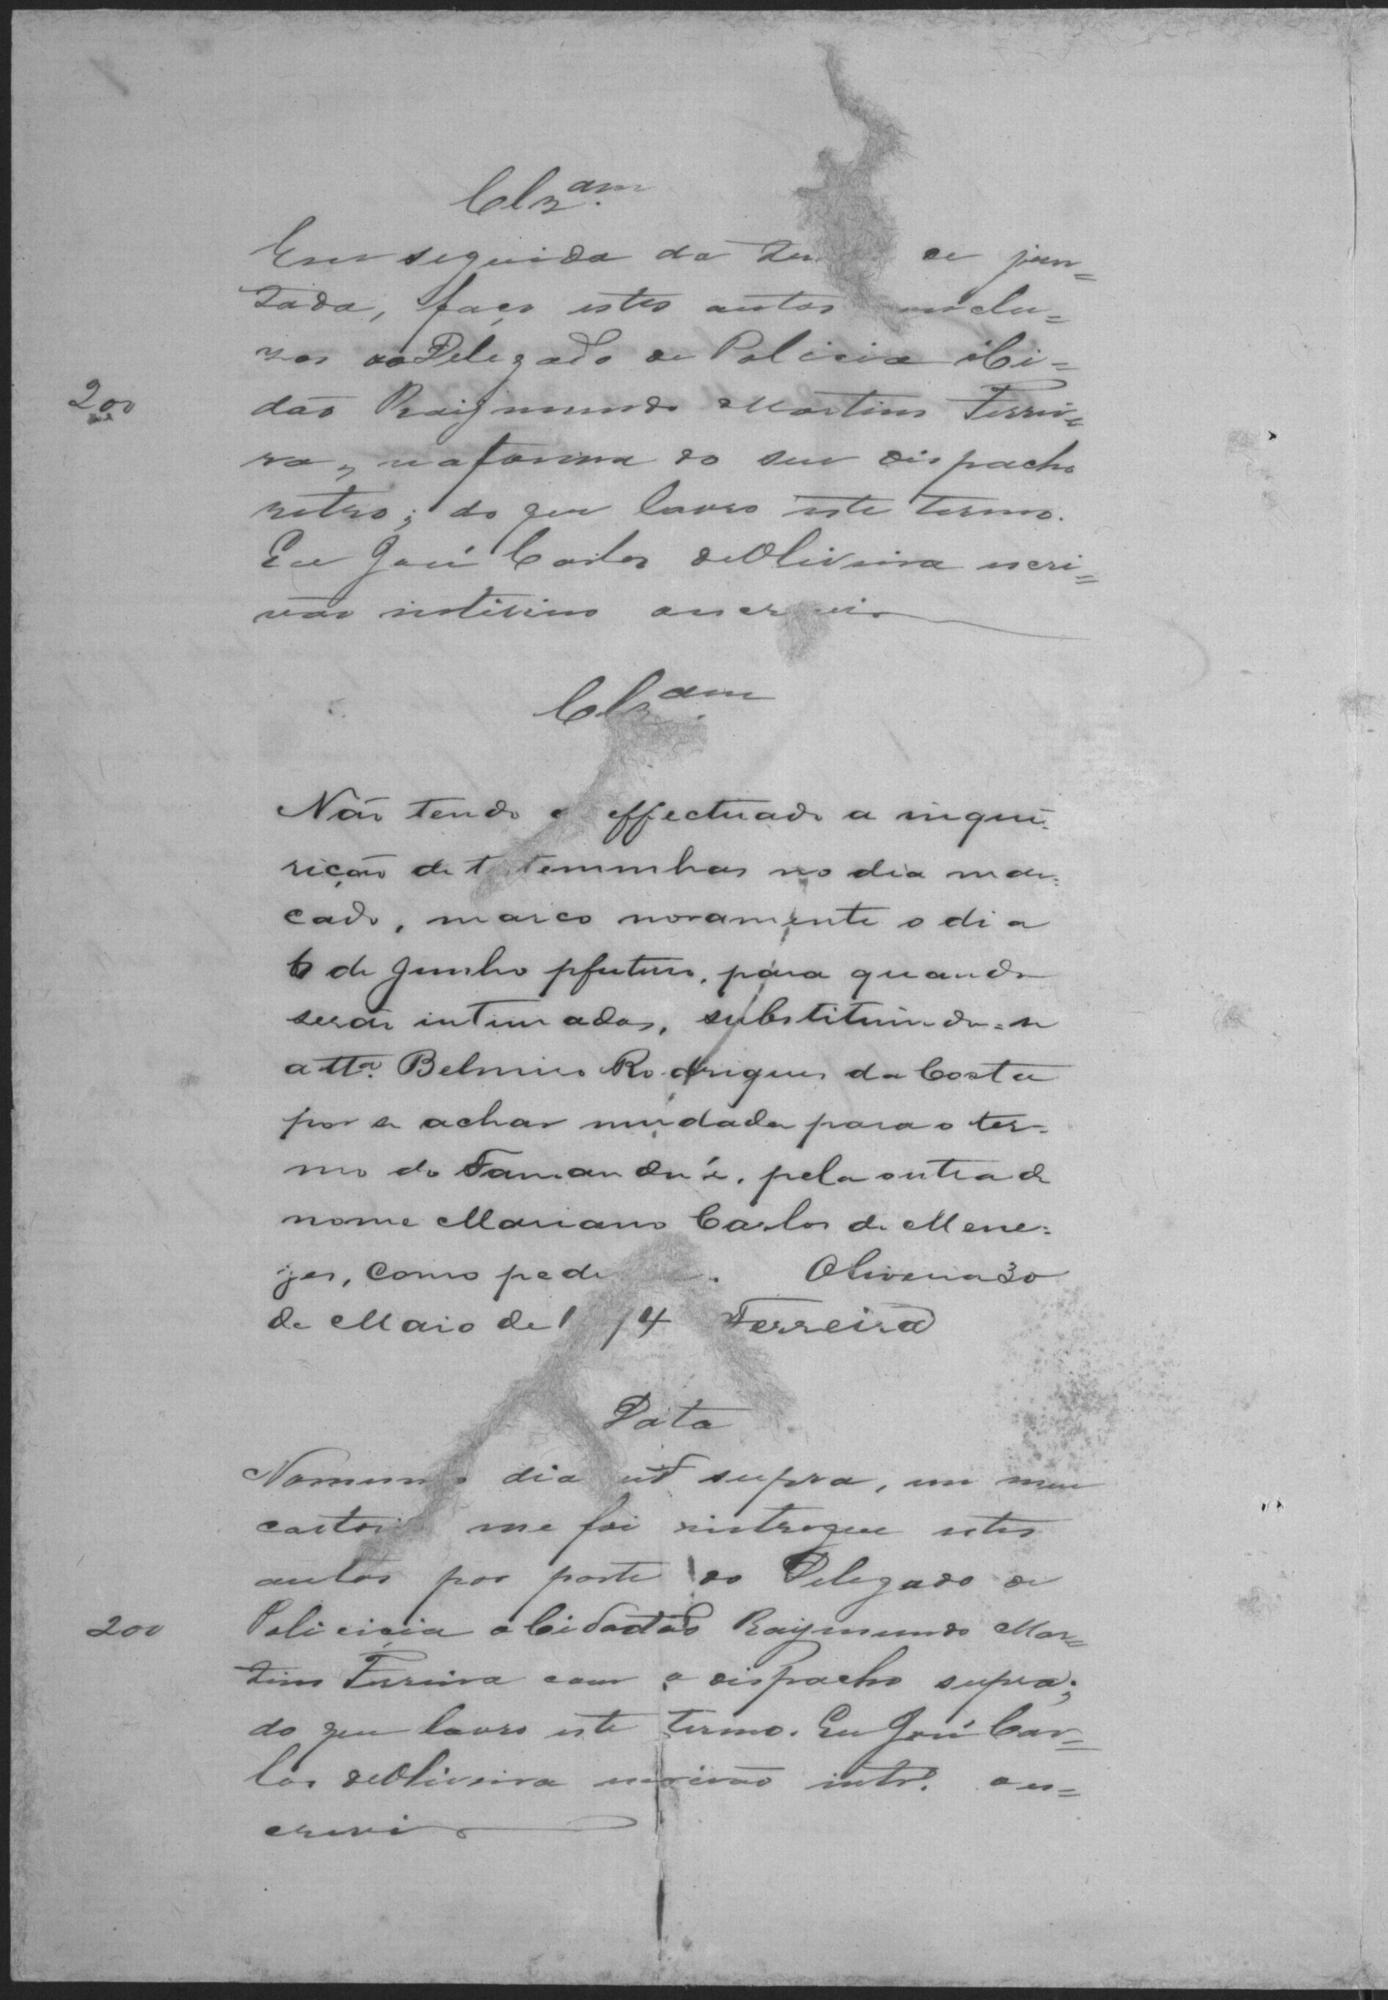 Clz.am
Em seguida da de jun=
tada, faço estes autos conclu=
zos ao Delegado de Policia o Ci=
200
dão Raijmundo Martins Ferrei=
ra, na forma do seu dispacho
retro; do que lavro este termo.
Eu José Carlos de Oliveira escri=
vão interino o escrevi
Clz.am
Não tendo se effectuado a inqui=
rição de testemunhas no dia mar=
cado, marco novamente o dia
6 de Junho pfuturo, para quando
serão intimadas, substituindo=se
a tta. Belmiro Rodrigues da Costa
por se achar mudada para o ter=
mo do Tamanduá, pela outra de
nome Mariano Carlos de Mene=
zes, como pede. Oliveira 30
de Maio de 1 4 Ferreira
Data
No mesmo dia ut supra, em meu
cartorio me foi entregue estes
autos por parte do Delegado de
200
Policicia o Cidadão Raymundo Mar=
tins Ferreira com o dispacho supra;
do que lavro este termo. Eu José Car=
los de Oliveira escrivão intr.º o es=
crevi